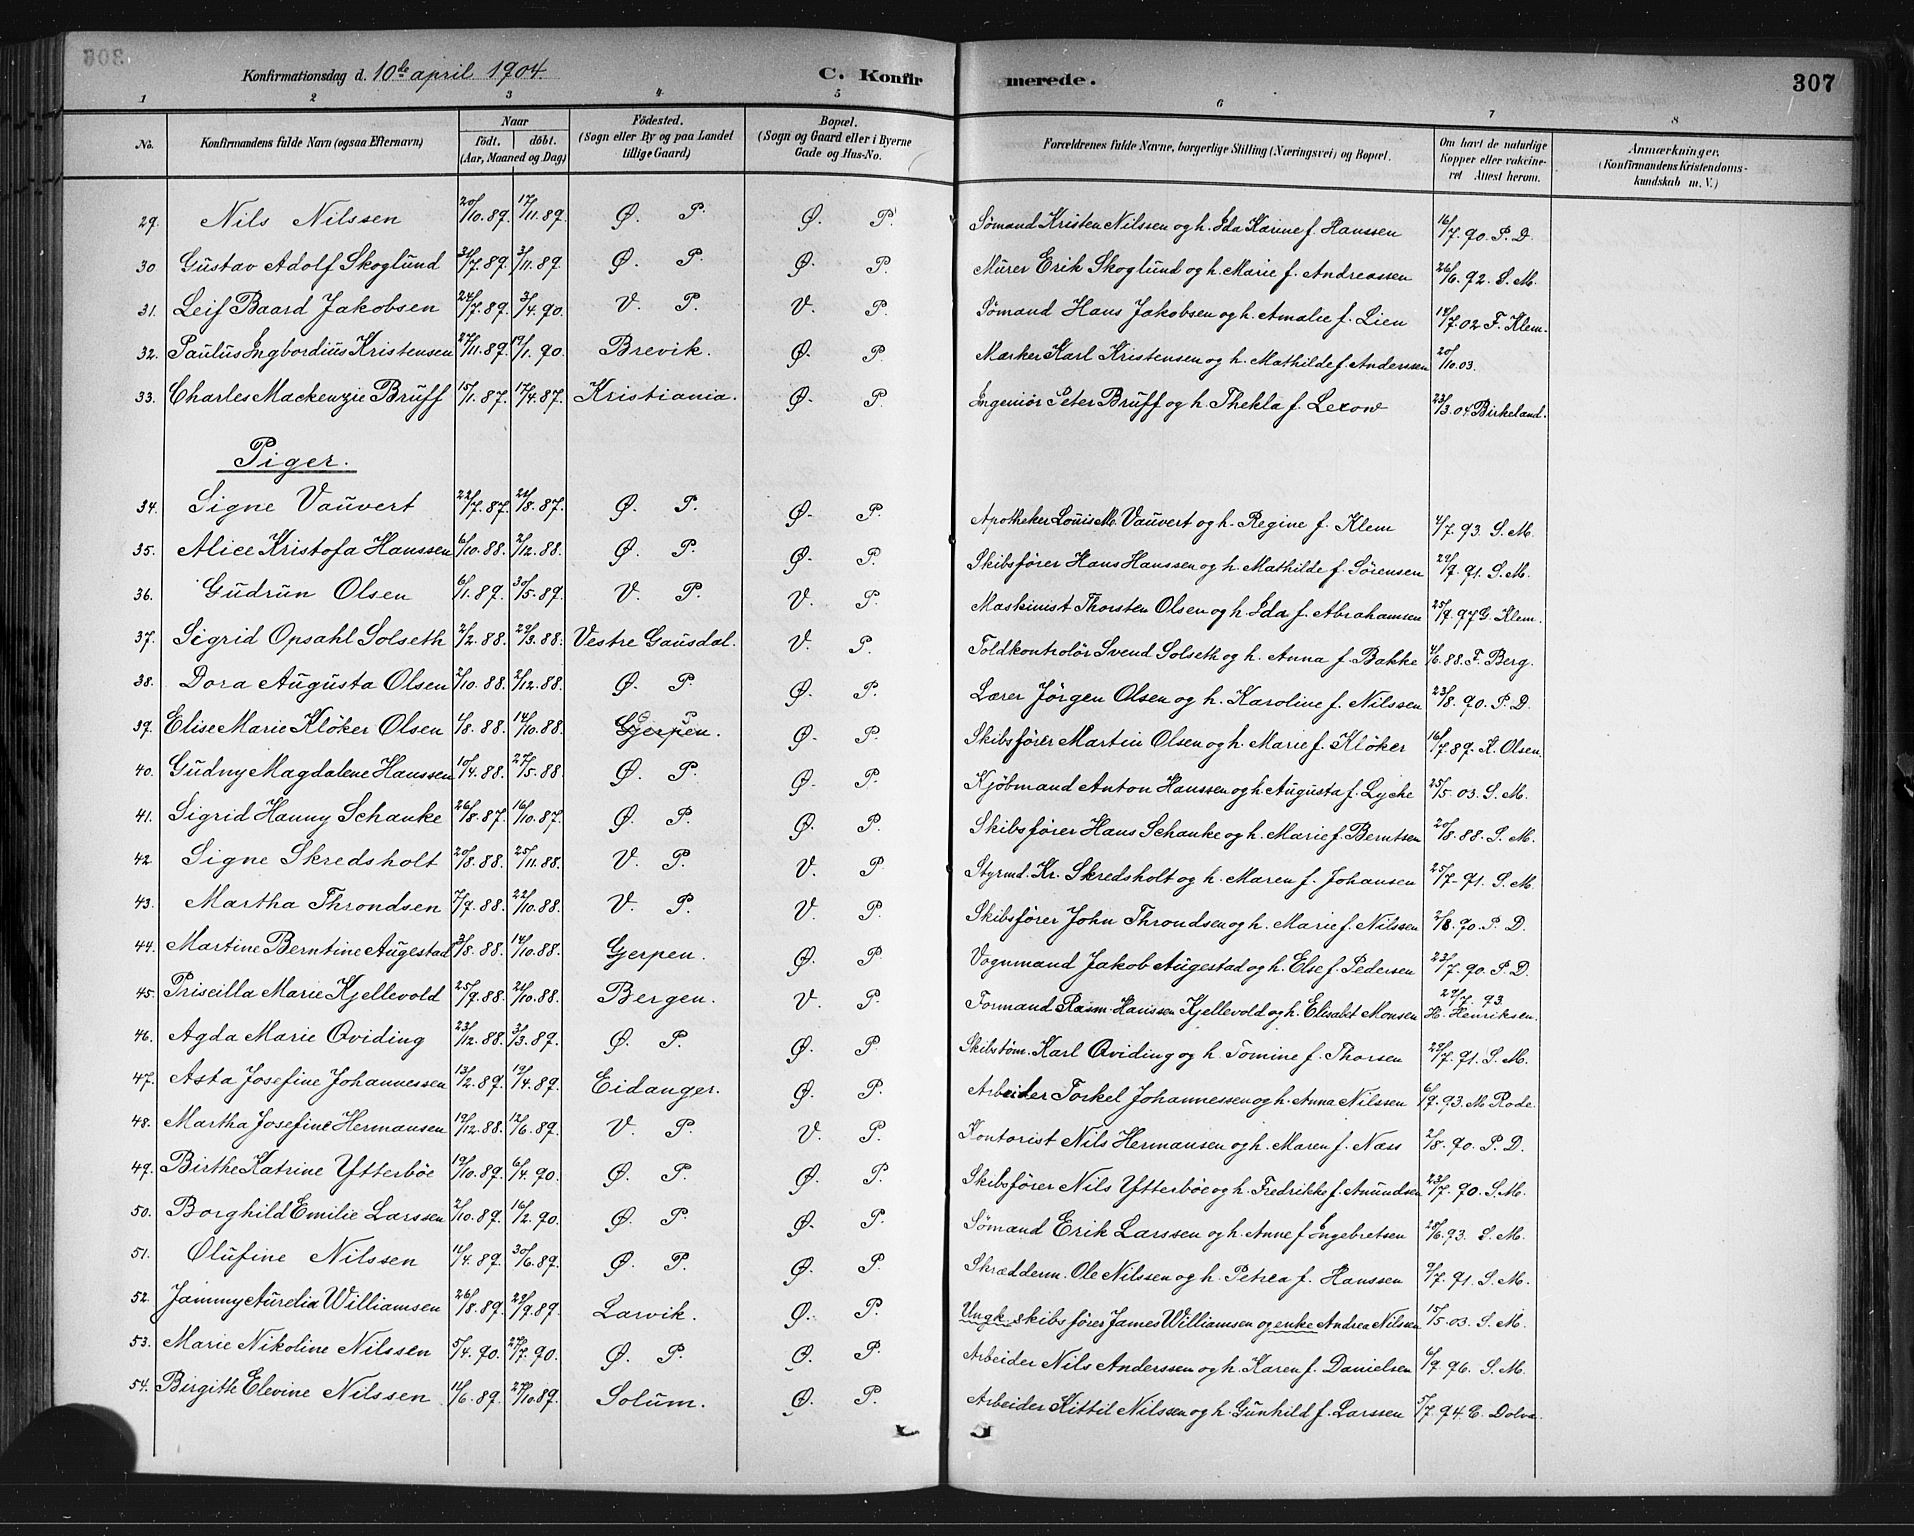 Konfirmationsdag d. 10de april 1904. C. Konfirmerede. 307
1 2 3 4 5 6 7 8
No. Konfirmandens fulde Navn (ogsaa Efternavn) Naar födt. döbt. (Aar, Maaned og Dag) Födested. (Sogn eller By og paa Landet tillige Gaard) Bopæl. (Sogn og Gaard eller i Byerne Gade og Hus-No. Forældrenes fulde Navne, borgerlige Stilling (Næringsvei) og Bopæl. Om havt de naturlige Kopper eller vakcineret Attest herom. Anmærkninger, (Konfirmandens Kristendomskundskab m. V.)
29. Nils Nilssen 20/10.89. 17/11.89. Ø. P. Ø. P. Sømand Kristen Nilssen og h. Ida Karine f. Hanssen 16/7.90. P. D.
30 Gustav Adolf Skoglund 31/7.89. 3/11.89. Ø. P. Ø. P. Murer Erik Skoglund og h. Marie f. Andreassen 26/6.92. S. M.
31. Leif Baard Jakobsen 24/7.89. 3/4.90. V. P. V. P. Sømand Hans Jakobsen og h. Amalie f. Lien 12/7.02 F. Klem.
32. Paulus Ingbordius Kristensen 27/11.89. 19/1.90. Brevik. Ø. P. Mærker Karl Kristensen og h. Mathilde f. Anderssen 20/10.03.
33. Charles Mackenzie Bruff 15/1.87. 17/4.87. Kristiania. Ø. P. Ingeniör Peter Bruff og h. Thekla f. Lexow 23/3.04 Birkeland.
Piger.
34. Signe Vauvert 22/7.87. 22/8.87. Ø. P. Ø. P. Apotheker Louis M. Vauvert og h. Regine f. Klem 4/7.93. S. M.
35. Alice Kristofa Hanssen 6/10.88. 2/12.88. Ø. P. Ø. P. Skibsfører Hans Hanssen og h. Mathilde f. Sørensen 29/9.91. S. M.
36. Gudrun Olsen 6/1.89. 30/5.89. V. P. V. P. Maskinist Thorsten Olsen og h. Ida f. Abrahamsen 25/9.97 G. Klem.
37. Sigrid Opsahl Solseth 2/2.88. 29/3.88. Vestre Gausdal. V. P. Toldkontrolör Svend Solseth og h. Anna f. Bakke 4/6.88. F. Berg.
38. Dora Augusta Olsen 2/10.88. 2/12.88. Ø. P. Ø. P. Lærer Jörgen Olsen og h. Karoline f. Nilssen 23/8.90. P. D.
39. Elise Marie Klöker Olsen 4/8.88. 14/10.88. Gjerpen. Ø. P. Ø. P. Skibsfører Martin Olsen og h. Marie f. Klöker 16/7.89. K. Olsen.
40. Gudny Magdalene Hanssen 10/4.88. 27/5.88. Ø. P. Ø. P. Kjöbmand Anton Hanssen og h. Augusta f. Lyche 25/5.03. S. M.
41. Sigrid Hanny Schanke 26/8.87. 16/10.87. Ø. P. Ø. P. Skibsfører Hans Schanke og h. Marie f. Berntsen 20/8.88. S. M.
42 Signe Skredsholt 20/8.88. 25/11.88. V. P. V. P. Styrmd. Kr. Skredsholt og h. Maren f. Johansen 25/7.91. S. M.
43. Martha Throndsen 7/9.88. 22/10.88. V. P. V. P. Skibsfører John Throndsen og h. Marie f. Nilssen 2/8.90. P. D.
44. Martine Berntine Augestad 3/8.88. 14/10.88. Gjerpen. Ø. P. Vognmand Jakob Augestad og h. Else f. Pedersen 23/7.90. P. D.
45. Priscilla Marie Kjellevold 25/9.88. 21/10.88. Bergen. V. P. Formand Rasm. Hanssen Kjellevold og h. Elisabet Monsen 29/7.93. H. Henriksen.
46. Agda Marie Qviding 23/12.88. 3/3.89. Ø. P. Ø. P. Skibstöm. Karl Qviding og h. Tomine f. Thorsen 29/7.91. S. M.
47. Asta Josefine Johannessen 13/2.89. 19/4.89. Eidanger. Ø. P. Arbeider Torkel Johannessen og h. Anna Nilssen 6/9.93. M. Rode.
48. Martha Josefine Hermansen 19/12.88. 12/6.89. V. P. V. P. Kontorist Nils Hermansen og h. Maren f. Næss 2/8.90. P. D.
49. Birthe Katrine Ytterböe 19/10.89. 6/4.90. Ø. P. Ø. P. Skibsfører Nils Ytterböe og h. Fredrikke f. Amundsen 23/7.90. S. M.
50. Borghild Emilie Larssen 2/10.89. 16/2.90. Ø. P. Ø. P. Sømand Erik Larssen og h. Anne f. Ingebretsen 28/6.93. S. M.
51. Olufine Nilssen 11/4.89. 30/6.89. Ø. P. Ø. P. Skrædderm. Ole Nilssen og h. Petrea f. Hanssen 9/7.91. S. M.
52. Jammy Aurelia Williamsen 26/8.89. 29/9.89. Larvik. Ø. P. Ungk. skibsfører James Williamsen og enke Andrea Nilssen 15/5.03. S. M.
53. Marie Nikoline Nilssen 5/4.90. 27/7.90. Ø. P. Ø. P. Arbeider Nils Anderssen og h. Karen f. Danielsen 6/9.96. S. M.
54. Birgith Elevine Nilssen 11/6.89. 27/10.89. Solum. Ø. P. Arbeider Kittil Nilssen og h. Gunhild f. Larssen 5/7.94. E. Dolva.